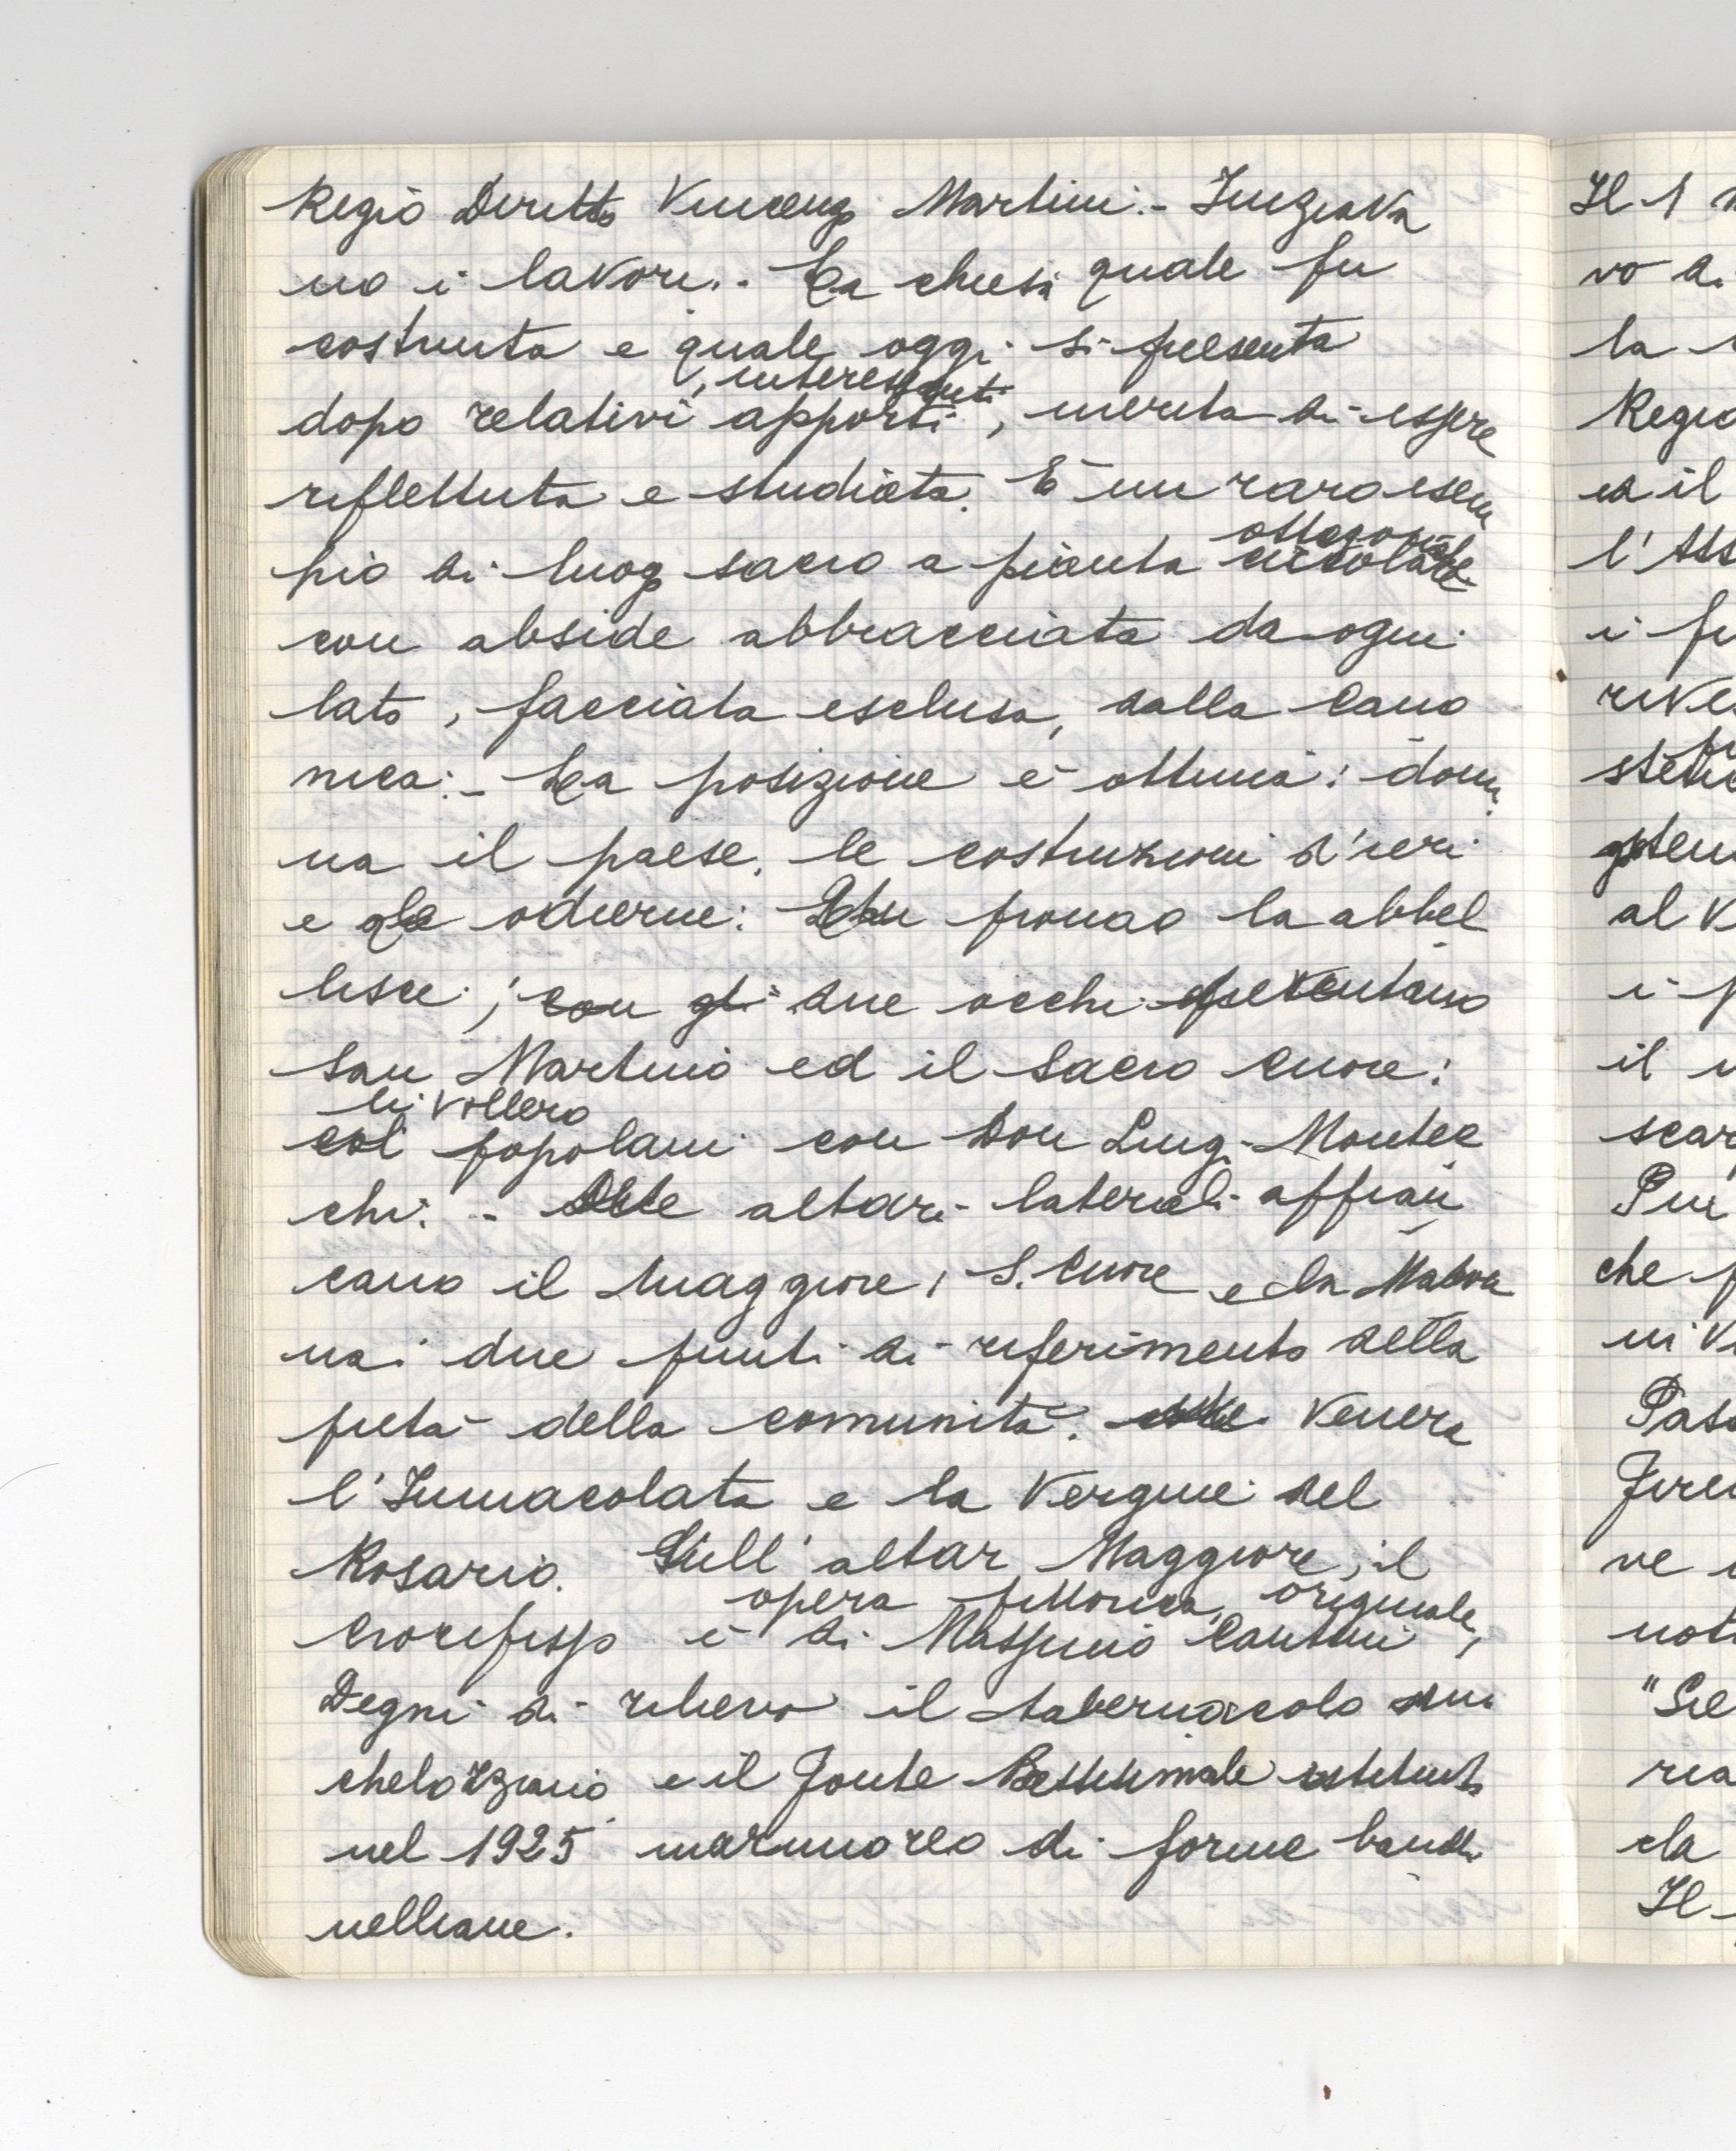 Regio Diritto Vincenzo Martini.- Iniziava
no i lavori.- La chiesa quale fu
costruita e quale oggi si presenta
, interessanti
dopo relativi apporti, merita di essere
riflettuta e studiata. È un raro esem
ottagonale
pio di luogo sacro a pianta circolare
con abside abbracciata da ogni
lato, facciata esclusa, dalla Cano
nica.- La posizione è ottima: domi
na il paese, le costruzioni d'ieri
e le odierne: Un pronao la abbel
lisce; con gli due occhi
San Martino ed il Sacro Cuore:
li vollero
col popolani con Don Luigi Montec
chi. - Due altari laterali affian
cano il Maggiore, S. Cuore e la Madon
nai due punti di riferimento della
pietà della comunità. Venera
l'Immacolata e la Vergine del
Rosario. Sull'altar Maggiore, il
opera pittorica, originale,
Crocefisso è di Massimo Cantini
Degni di rilievo il tabernacolo mi
chelozziano e il Fonte Battesimale
nel 1925 marmoreo di forme bandi
nelliane.
Il 1
vo di
la
Regio
ed il
l'Ass
i
rive
al V
i p
il
scar
che p
ni
Pas
Fire
ve
not
ria
cla
Il